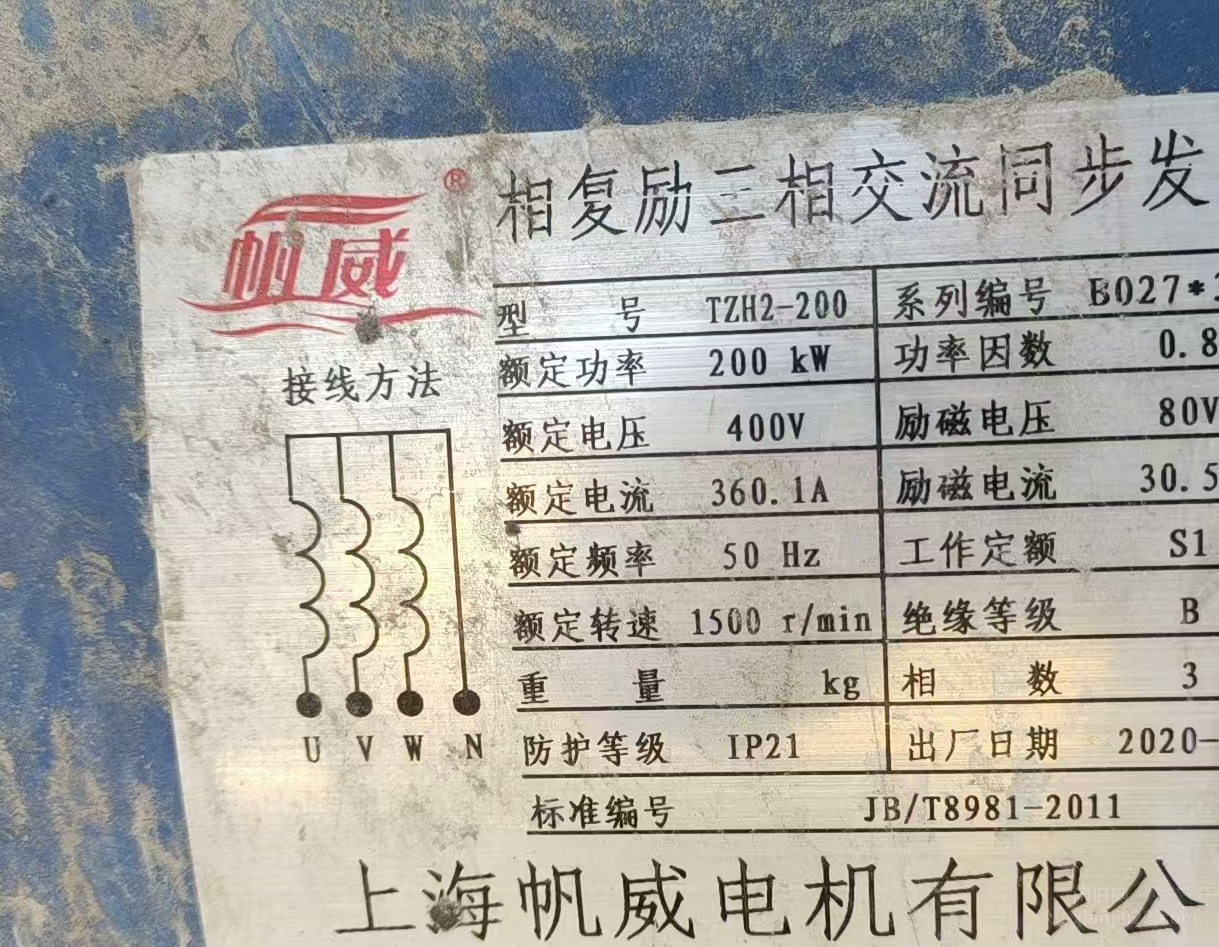 帆威®
相复励三相交流同步发
型 号 TZH2-200 系列编号 B027*
额定功率 200 kW 功率因数 0.8
接线方法
额定电压 400V 励磁电压 80V
额定电流 360.1A 励磁电流 30.5
额定频率 50 Hz 工作定额 S1
额定转速 1500 r/min 绝缘等级 B
重 量 kg 相 数 3
U V W N
防护等级 IP21 出厂日期 2020-
标准编号 JB/T8981-2011
上海帆威电机有限公